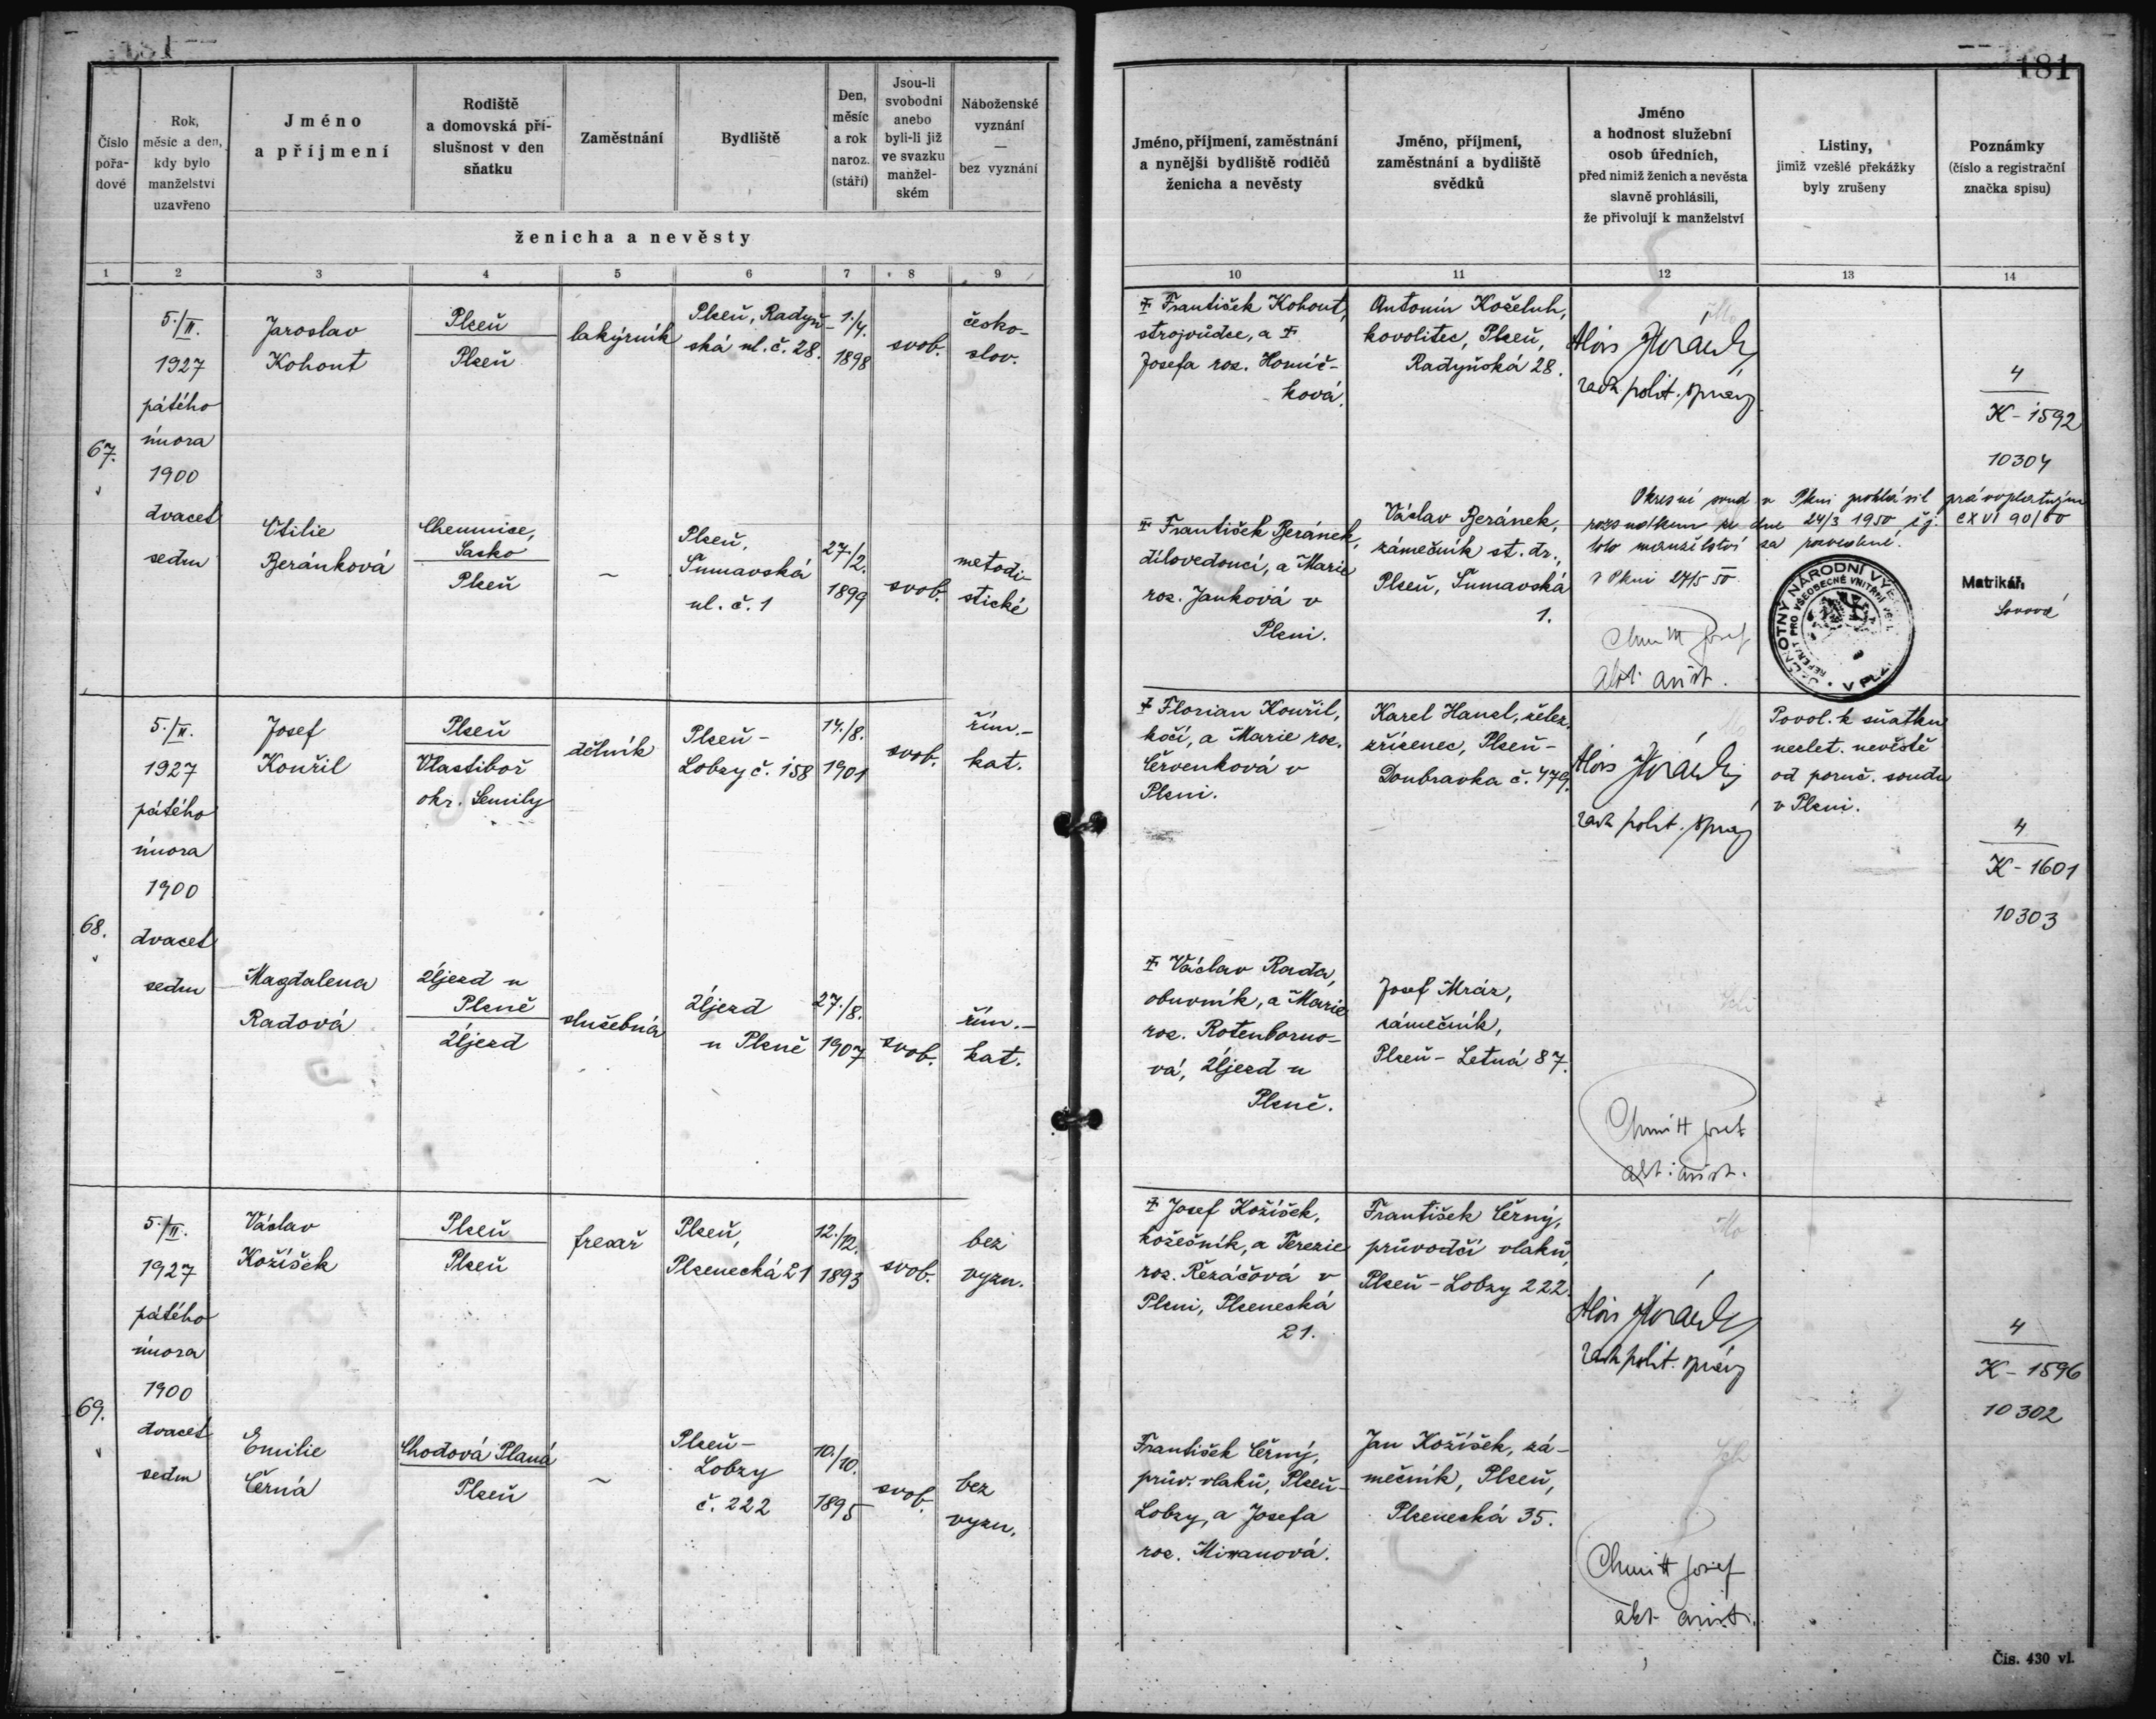 181
Číslo pořa- dové
Rok, měsíc a den, kdy bylo manželství uzavřeno
Jméno a příjmení
Rodiště a domovská pří- slušnost v den sňatku
Zaměstnání
Bydliště
Den, měsíc a rok naroz. (stáří)
Jsou-li svobodni anebo byli-li již ve svazku manžel- ském
Náboženské vyznání — bez vyznání
ženicha a nevěsty
Jméno, příjmení, zaměstnání a nynější bydliště rodičů ženicha a nevěsty
Jméno, příjmení, zaměstnání a bydliště svědků
Jméno a hodnost služební osob úředních, před nimiž ženich a nevěsta slavně prohlásili, že přivolují k manželství
Listiny, jimiž vzešlé překážky byly zrušeny
Poznámky (číslo a registrační značka spisu)
1 2 3 4 5 6 7 8 9 10 11 12 13 14
67.
5./II.
1927
pátého
února
1900
dvacet
sedm
Jaroslav
Kohout
Plzeň
Plzeň
lakýrník
Plzeň, Radyň-
ská ul. č. 28.
1./4.
1898
svob.
česko-
slov.
‡ František Kohout,
strojvůdce, a ‡
Josefa roz. Homič-
ková.
Antonín Košeluh,
kovolitec, Plzeň,
Radyňská 28.
Alois
rada polit. správy
4
K - 1592
10304
Otilie
Beránková
Chemnice,
Sasko
Plzeň
~
Plzeň,
Šumavská
ul. č. 1
27./2.
1899
svob.
metodi-
stické
‡ František Beránek,
dílovedoucí, a Marie
roz. Janková v
Plzni.
Václav Beránek,
zámečník st. dr.,
Plzeň, Šumavská
1.
Okresní soud v Plzni prohlásil právoplatným
rozsudkem ze dne 24/3 1950 čj. CXVI 90/50
toto manželství za rozvedené.
V Plzni 27/5 50
JEDNOTNÝ NÁRODNÍ VÝ
REFERÁT PRO VŠEOBECNÉ VNITŘNÍ
V PLZ
Matrikář:
Chmitt Josef
akt. asist.
68.
5./II.
1927
pátého
února
1900
dvacet
sedm
Josef
Kouřil
Plzeň
Vlastiboř
okr. Semily
dělník
Plzeň -
Lobzy č. 158
14./8.
1901
svob.
řím.-
kat.
‡ Florian Kouřil,
kočí, a Marie roz.
Červenková v
Plzni.
Karel Hanzl, želez.
zřízenec, Plzeň -
Doubravka č. 479.
Alois
rada polit. správy
Povol. k sňatku
nezlet. nevěstě
od poruč. soudu
v Plzni.
4
K - 1601
10303
Magdalena
Radová
Újezd u
Plzně
Újezd
služebná
Újezd
u Plzně
27./8.
1907
svob.
řím.-
kat.
‡ Václav Rada,
obuvník, a Marie
roz. Rotenborno-
vá, Újezd u
Plzně.
Josef Mráz,
zámečník,
Plzeň - Letná 87.
Chmitt Josef
akt. asist.
69.
5./II.
1927
pátého
února
1900
dvacet
sedm
Václav
Kožíšek
Plzeň
Plzeň
frezař
Plzeň,
Plzenecká 21
12./12.
1893
svob.
bez
vyzn.
‡ Josef Kožíšek,
kožešník, a Terezie
roz. Řezáčová v
Plzni, Plzenecká
21.
František Černý,
průvodčí vlaků,
Plzeň - Lobzy 222.
Alois
rada polit. správy
4
K - 1596
10302
Emilie
Černá
Chodová Planá
Plzeň
~
Plzeň -
Lobzy
č. 222
10./10.
1895
svob.
bez
vyzn.
František Černý,
prův. vlaků, Plzeň -
Lobzy, a Josefa
roz. Mixanová.
Jan Kožíšek, zá-
mečník, Plzeň,
Plzenecká 35.
Chmitt Josef
akt. asist.
Čís. 430 vl.